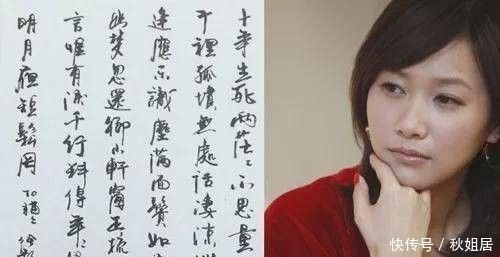 十年生死兩茫〻不思量
千裡孤墳無處話淒涼
逢應不識塵滿面鬢如
幽夢忽還鄉小軒窗正梳
言惟有淚千行料得年〻
明月夜短鬆岡
快传号 / 秋姐居